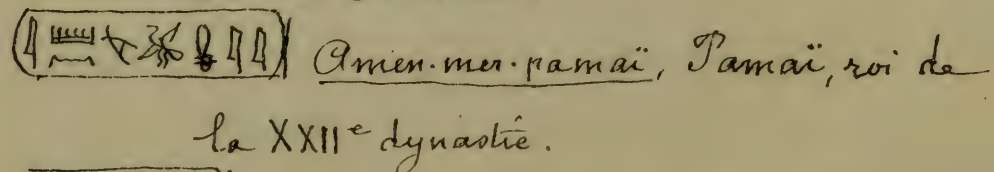 Amen·mer·pamaï, Pamaï, roi de
la XXIIe dynastie.